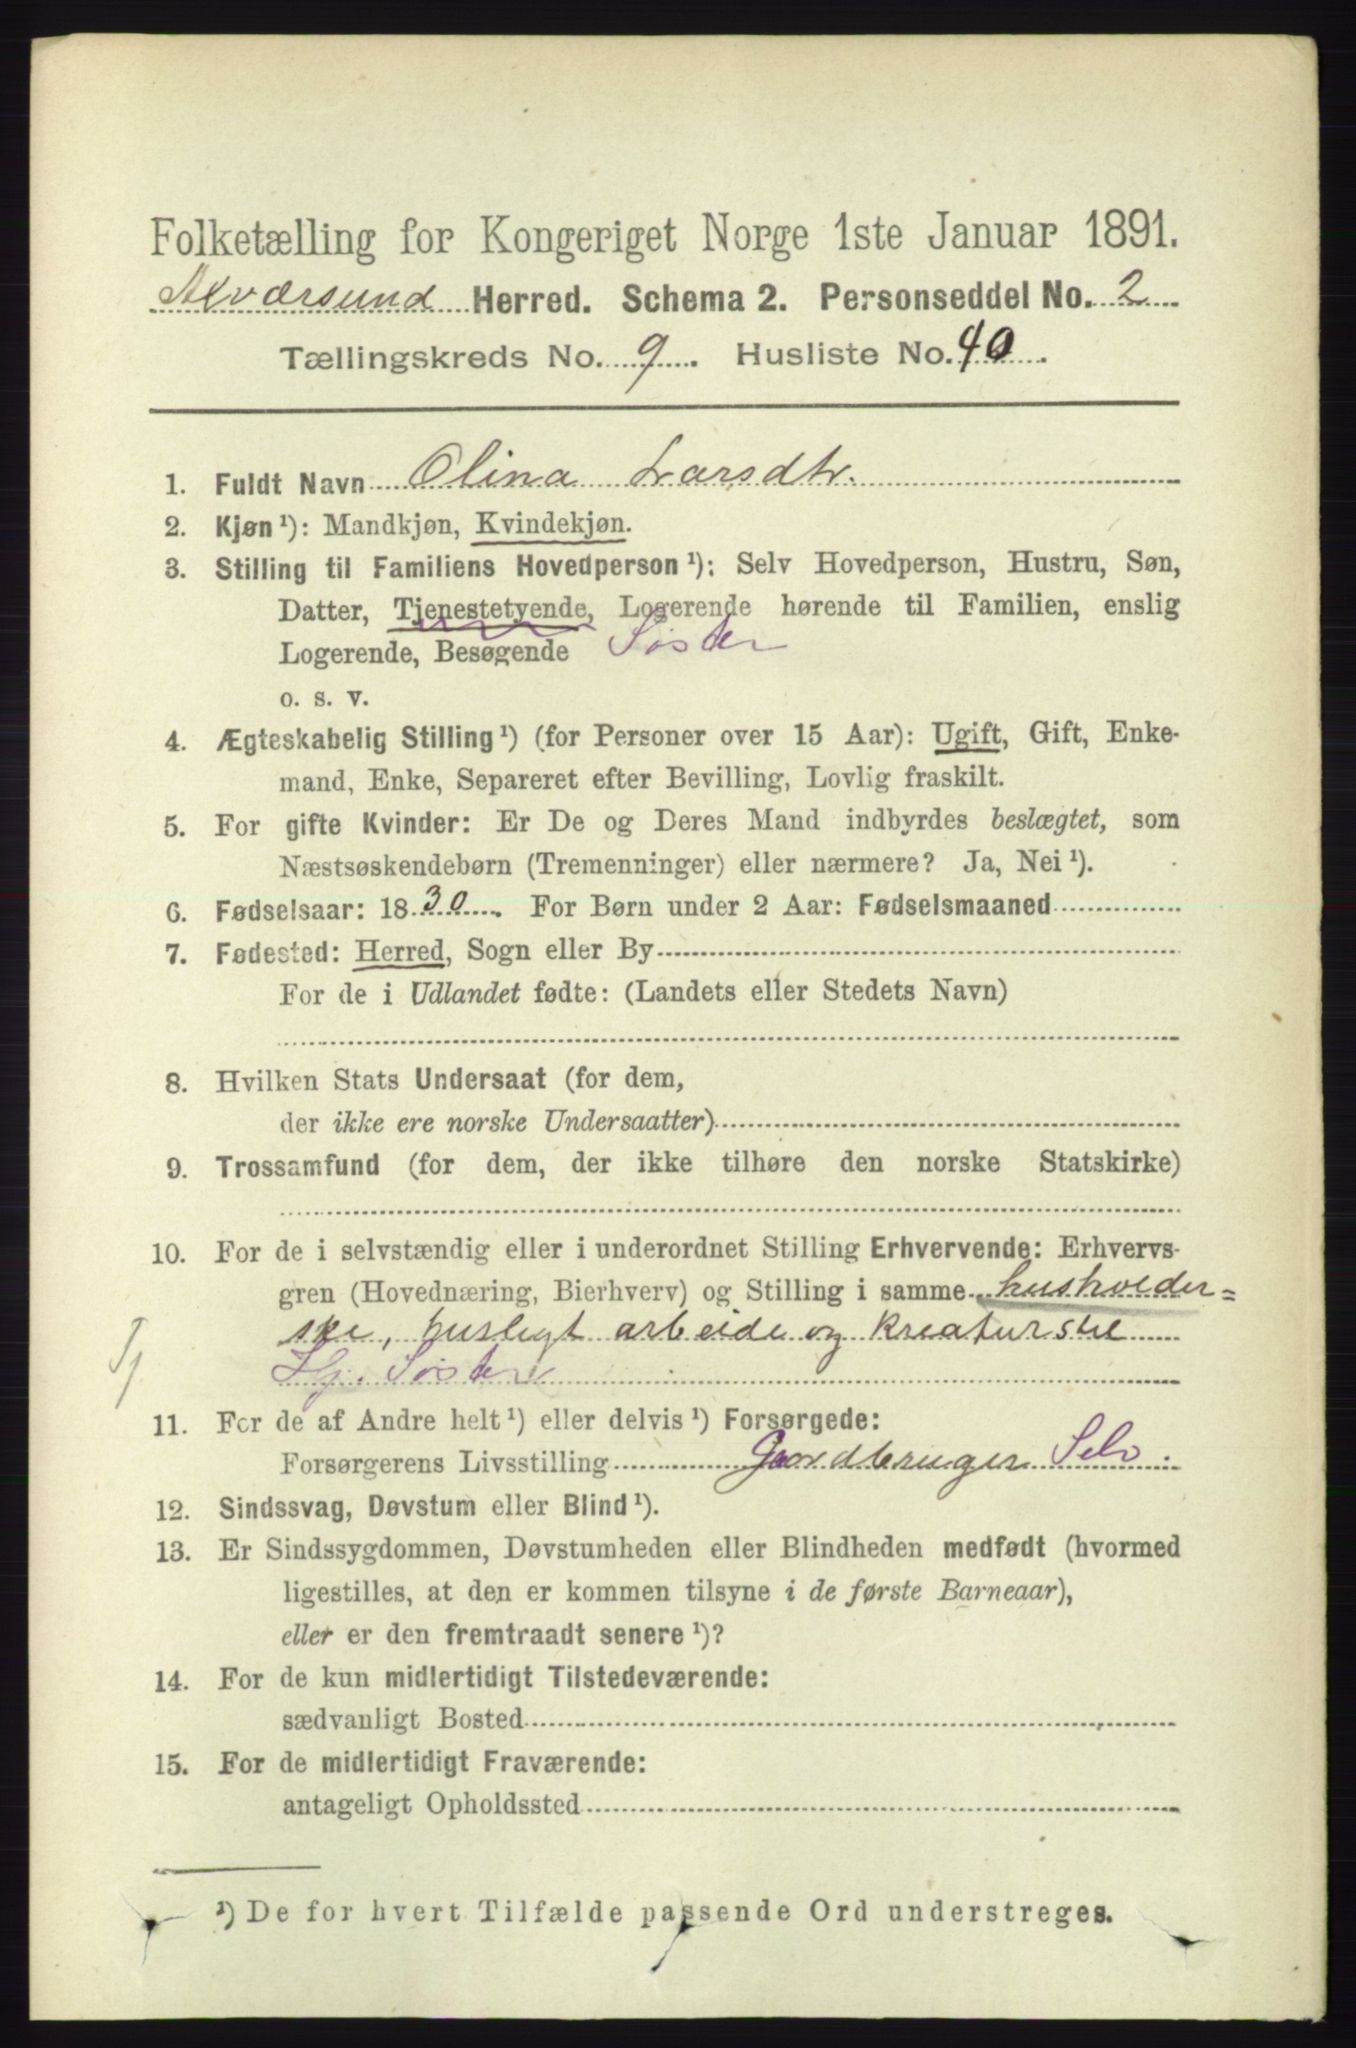 Folketælling for Kongeriget Norge 1ste Januar 1891.
Alværsund Herred. Schema 2. Personseddel No. 2
Tællingskreds No. 9. Husliste No. 40.
1. Fuldt Navn Olina Larsdtr.
2. Kjøn ¹): Mandkjøn, Kvindekjøn.
3. Stilling til Familiens Hovedperson ¹): Selv Hovedperson, Hustru, Søn,
Datter, Tjenestetyende, Logerende hørende til Familien, enslig
Logerende, Besøgende Söster
o. s. v.
4. Ægteskabelig Stilling ¹) (for Personer over 15 Aar): Ugift, Gift, Enke-
mand, Enke, Separeret efter Bevilling, Lovlig fraskilt.
5. For gifte Kvinder: Er De og Deres Mand indbyrdes beslægtet, som
Næstsøskendebørn (Tremenninger) eller nærmere? Ja, Nei ¹).
6. Fødselsaar: 1830. For Børn under 2 Aar: Fødselsmaaned
7. Fødested: Herred, Sogn eller By
For de i Udlandet fødte: (Landets eller Stedets Navn)
8. Hvilken Stats Undersaat (for dem,
der ikke ere norske Undersaatter)
9. Trossamfund (for dem, der ikke tilhøre den norske Statskirke)
10. For de i selvstændig eller i underordnet Stilling Erhvervende: Erhvervs-
gren (Hovednæring, Bierhverv) og Stilling i samme husholder=
ske, husligt arbeide og kreaturstel
Tj
Söster
11. For de af Andre helt ¹) eller delvis ¹) Forsørgede:
Forsørgerens Livsstilling Gaardbruger Selv.
12. Sindssvag, Døvstum eller Blind ¹).
13. Er Sindssygdommen, Døvstumheden eller Blindheden medfødt (hvormed
ligestilles, at den er kommen tilsyne i de første Barneaar),
eller er den fremtraadt senere ¹)?
14. For de kun midlertidigt Tilstedeværende:
sædvanligt Bosted
15. For de midlertidigt Fraværende:
antageligt Opholdssted
¹) De for hvert Tilfælde passende Ord understreges.